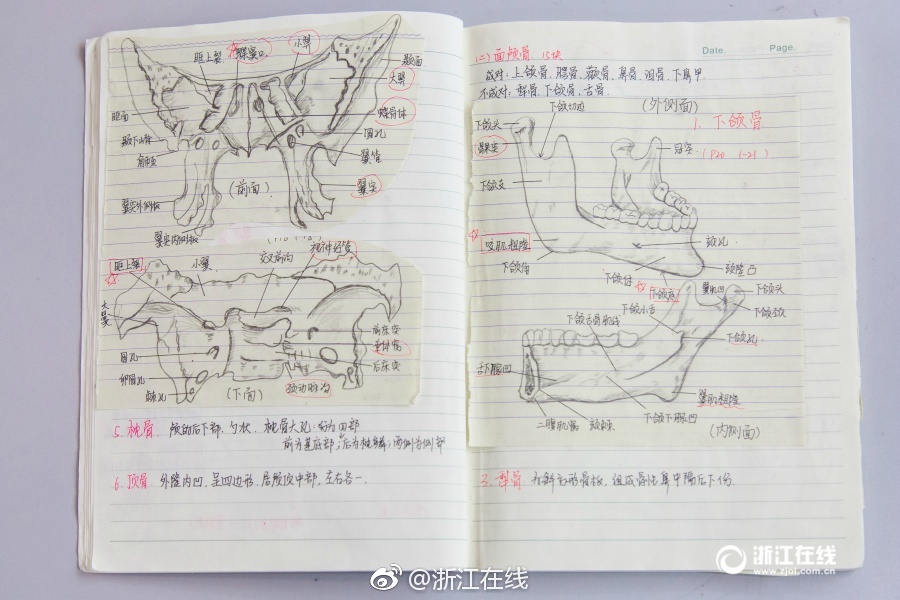 眶上裂
小翼
颞面
大翼
眶面
蝶骨体
圆孔
翼管
翼突
(前面)
翼突外侧板
翼突内侧板
眶上裂
小翼
交叉前沟
视神经管
大翼
前床突
垂体窝
后床突
圆孔
卵圆孔
棘孔
颈动脉沟
(下面)
5. 枕骨 颅的后下部, 勺状, 枕骨大孔: 分为四部
前为基底部; 后为枕鳞; 两侧为侧部
6. 顶骨 外隆内凹, 呈四边形, 居颅顶中部, 左右各一.
Date. Page.
(二) 面颅骨 15块
成对: 上颌骨、腭骨、颧骨、鼻骨、泪骨、下鼻甲
不成对: 犁骨、下颌骨、舌骨
(外侧面)
1. 下颌骨
(P20 1-21)
下颌切迹
下颌头
冠突
髁突
下颌支
咬肌粗隆
颏孔
下颌体
颏隆凸
下颌底
翼肌凹
下颌头
下颌颈
下颌小舌
下颌舌骨肌线
下颌孔
舌下腺凹
翼肌粗隆
二腹肌窝
颏棘
下颌下腺凹
(内侧面)
3. 犁骨 为斜方形骨板, 组成骨性鼻中隔后下份.
@浙江在线
浙江在线
www.zjol.com.cn